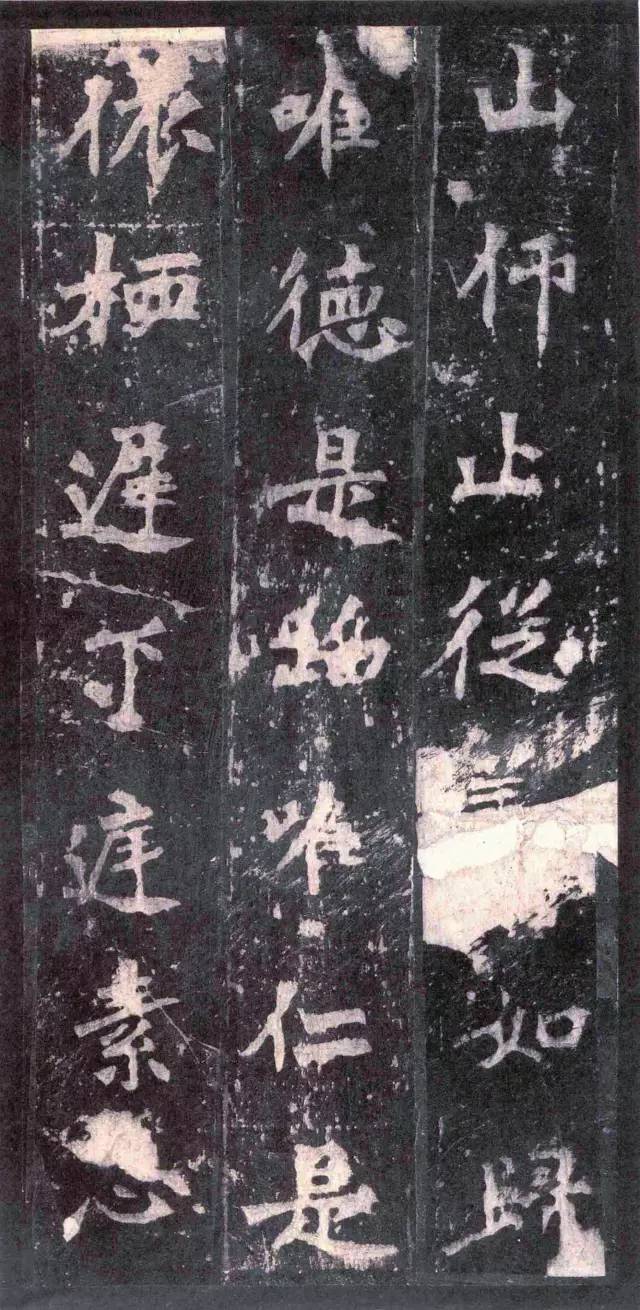 山仰止從如歸
唯德是蹈唯仁是
依栖遲下庭素心